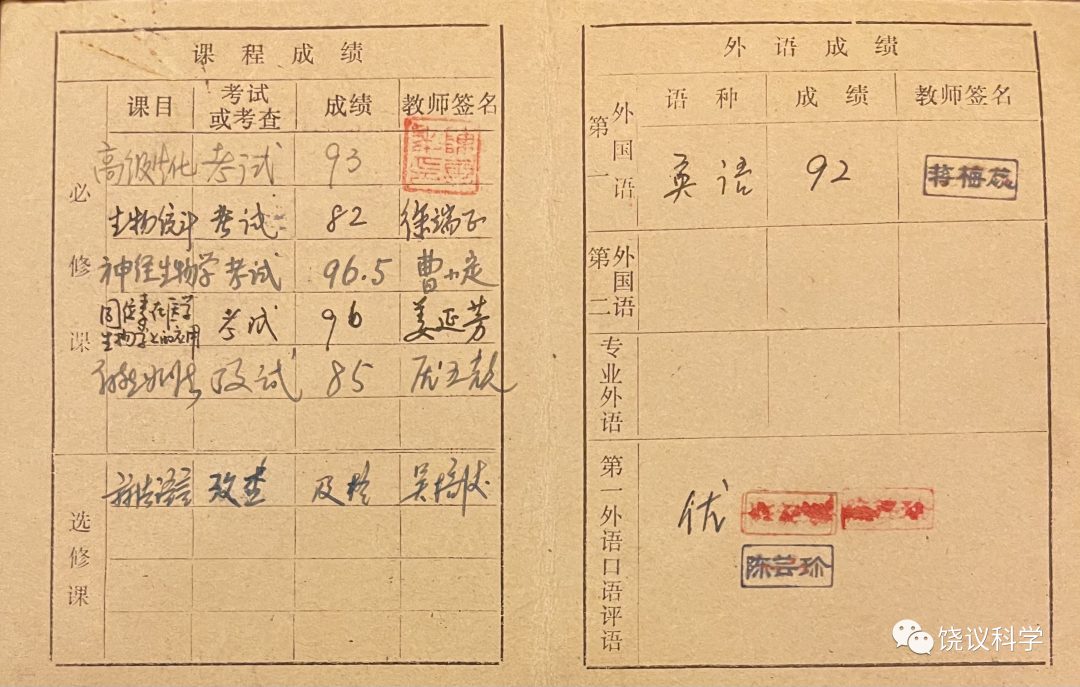 课程成绩
课目 考试或考查 成绩 教师签名
必修课
高级生化 考试 93
生物统计 考试 82 徐端正
神经生物学 考试 96.5 曹小定
同位素在医学生物学上的应用 考试 96 姜延芳
考试 85
选修课
考查 及格
外语成绩
语种 成绩 教师签名
第一外国语 英语 92
第二外国语
专业外语
第一外语口语评语 优
陈芸珍
饶议科学